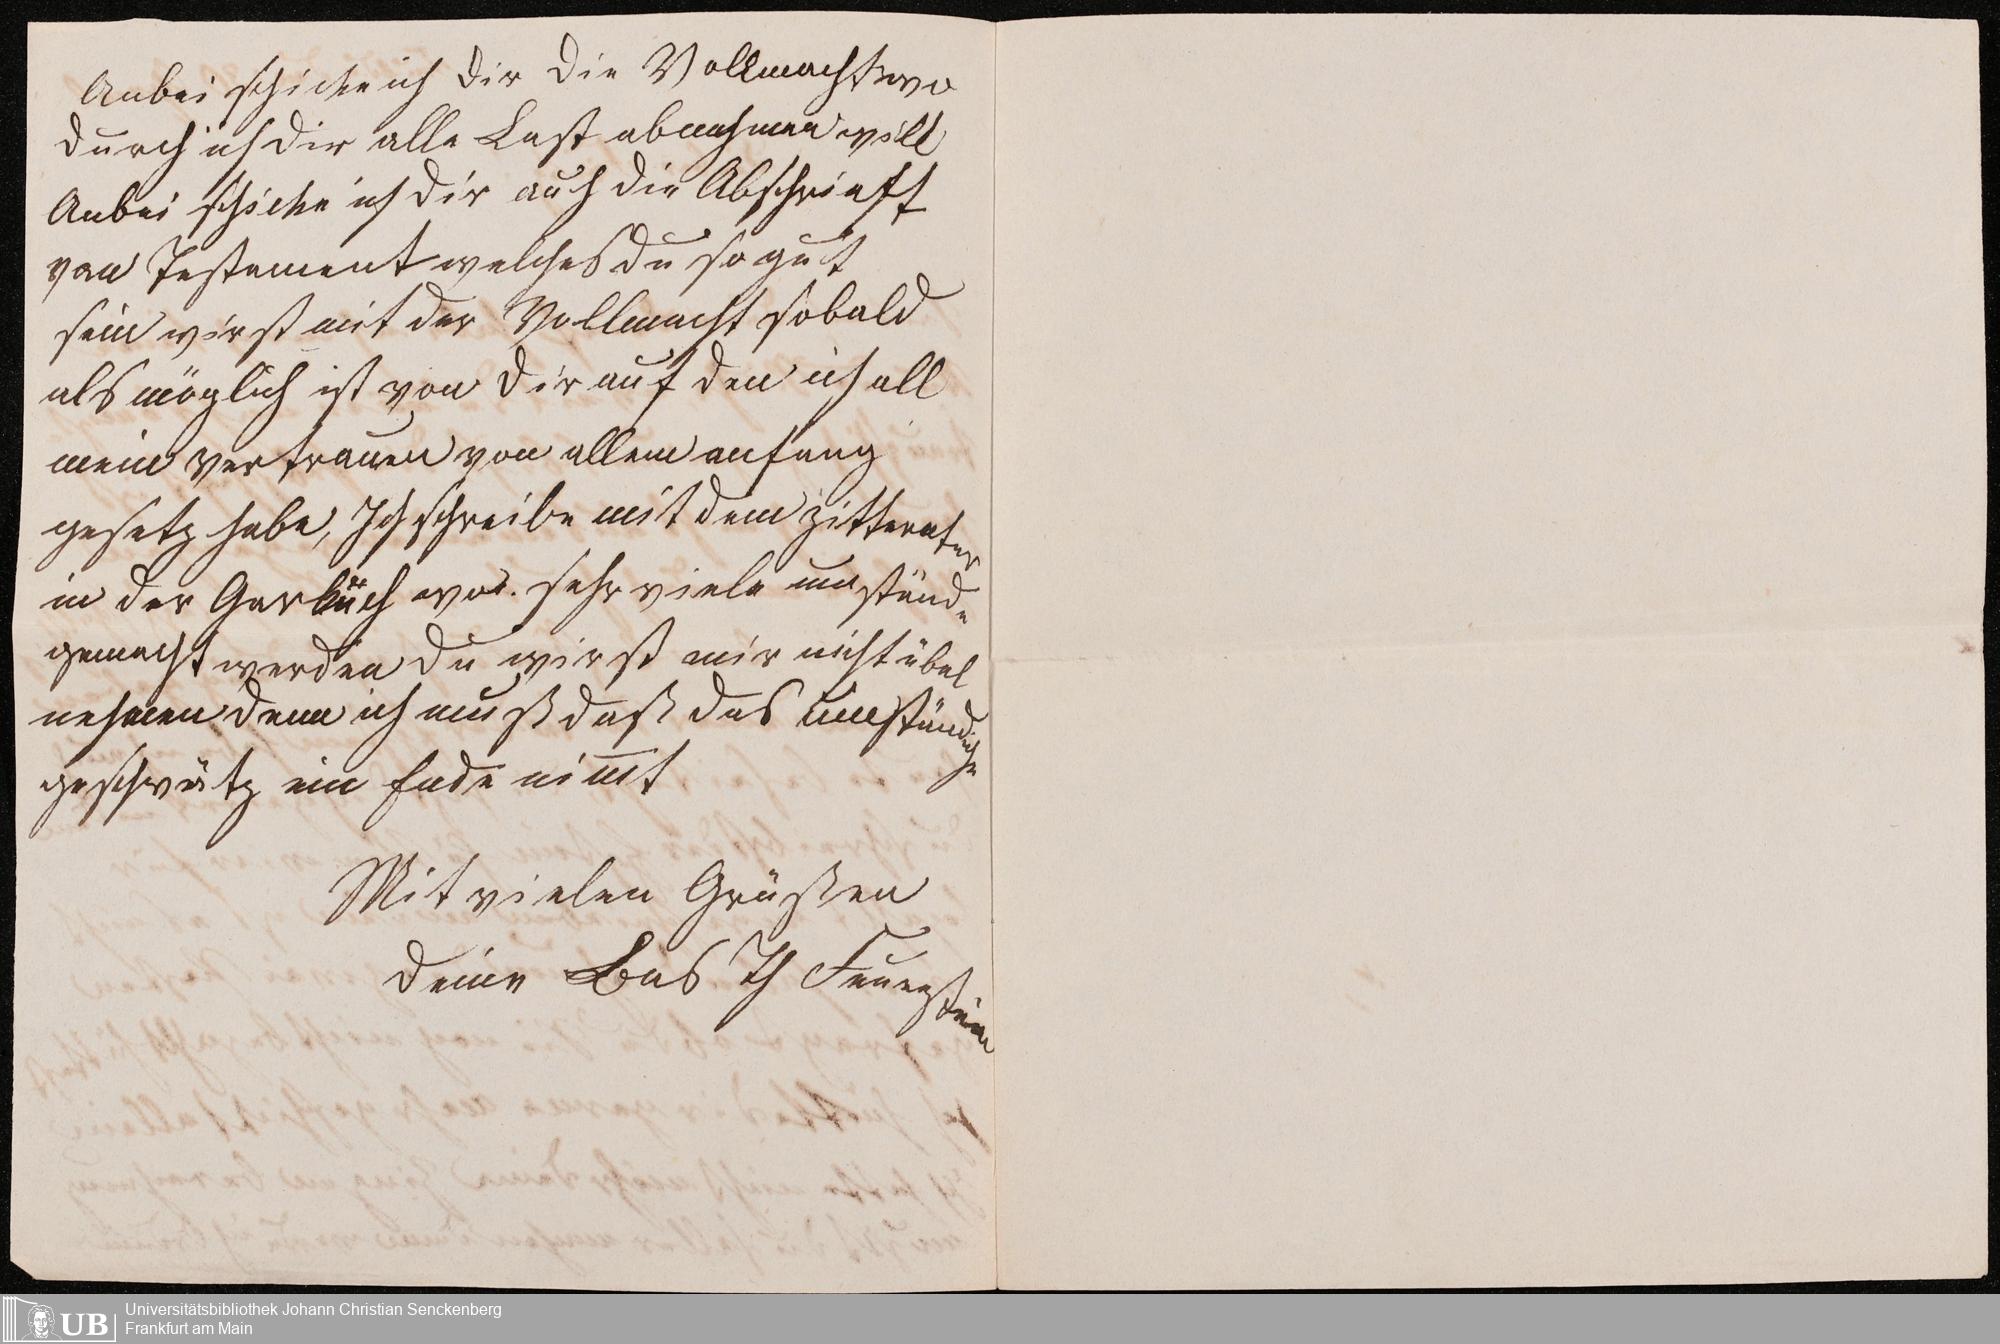 Anbei schicke ich dir die Vollmacht wo
durch ich dir alle Last abnehmen will
Anbei schicke ich dir auch die Abschrieft
von Testament welches du so gut
sein wirst mit der Vollmacht sobald
als möglich ist von dir auf den ich all
mein vertrauen von allem anfang
gesetz habe, Ich schreibe mit dem
in der Garküch wo. sehr viele umstände
gemacht werden du wirst mir nicht übel
nehmen denn ich muß daß das umständliche
geschwätz ein Ende nimt
Mit vielen Grüßen
deine Bas Th Feuerstein
UB
Universitätsbibliothek Johann Christian Senckenberg
Frankfurt am Main